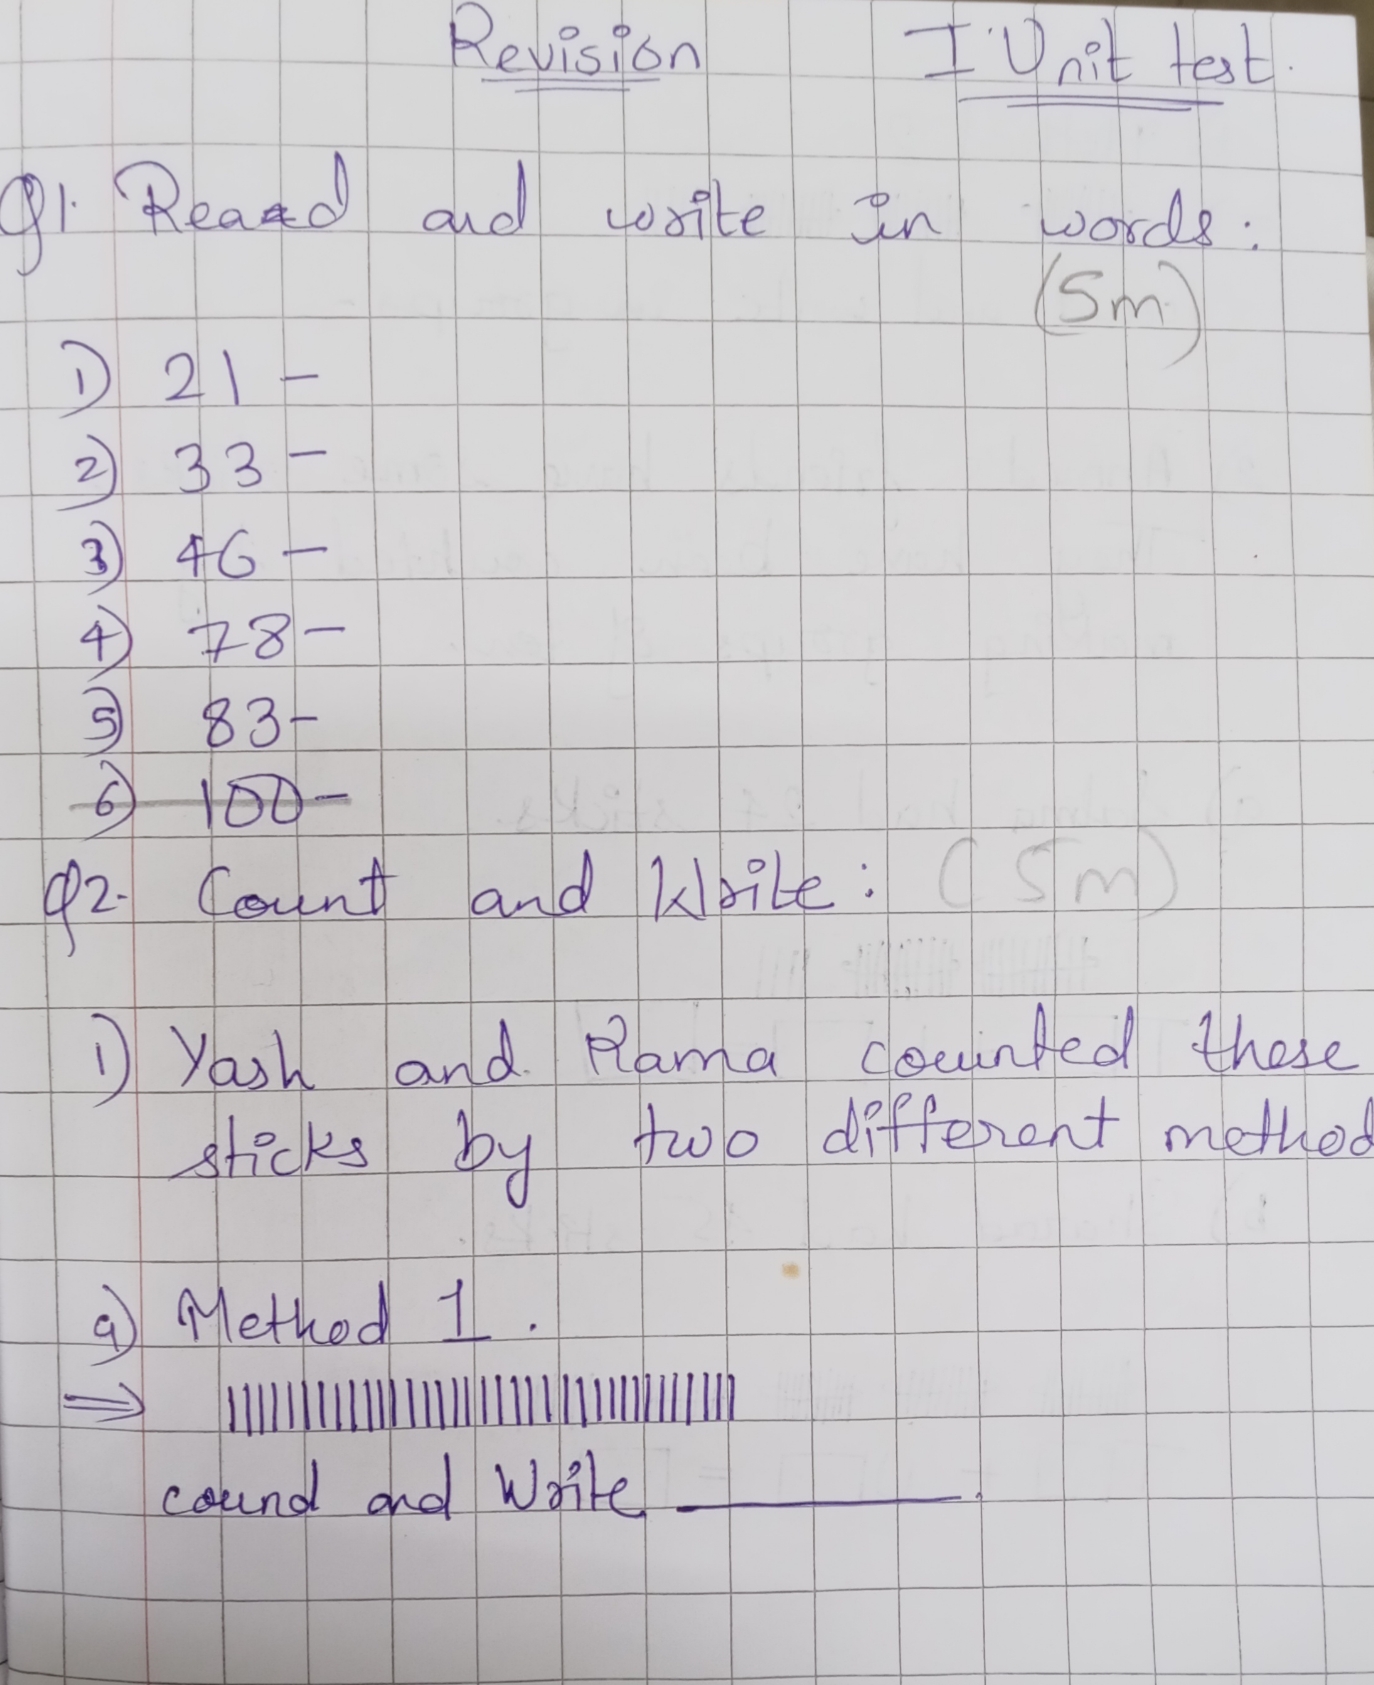 Revision I Unit test.
Q1. Reaad and write in words:
(5m)
1) 21 -
2) 33 -
3) 46 -
4) 78 -
5) 83 -
6) 100 -
Q2. Count and Write: (5m)
1) Yash and Rama counted these
sticks by two different method
a) Method 1.
⇒ ||||||||||||||||||||||||||||||||||
cound and Write ________.